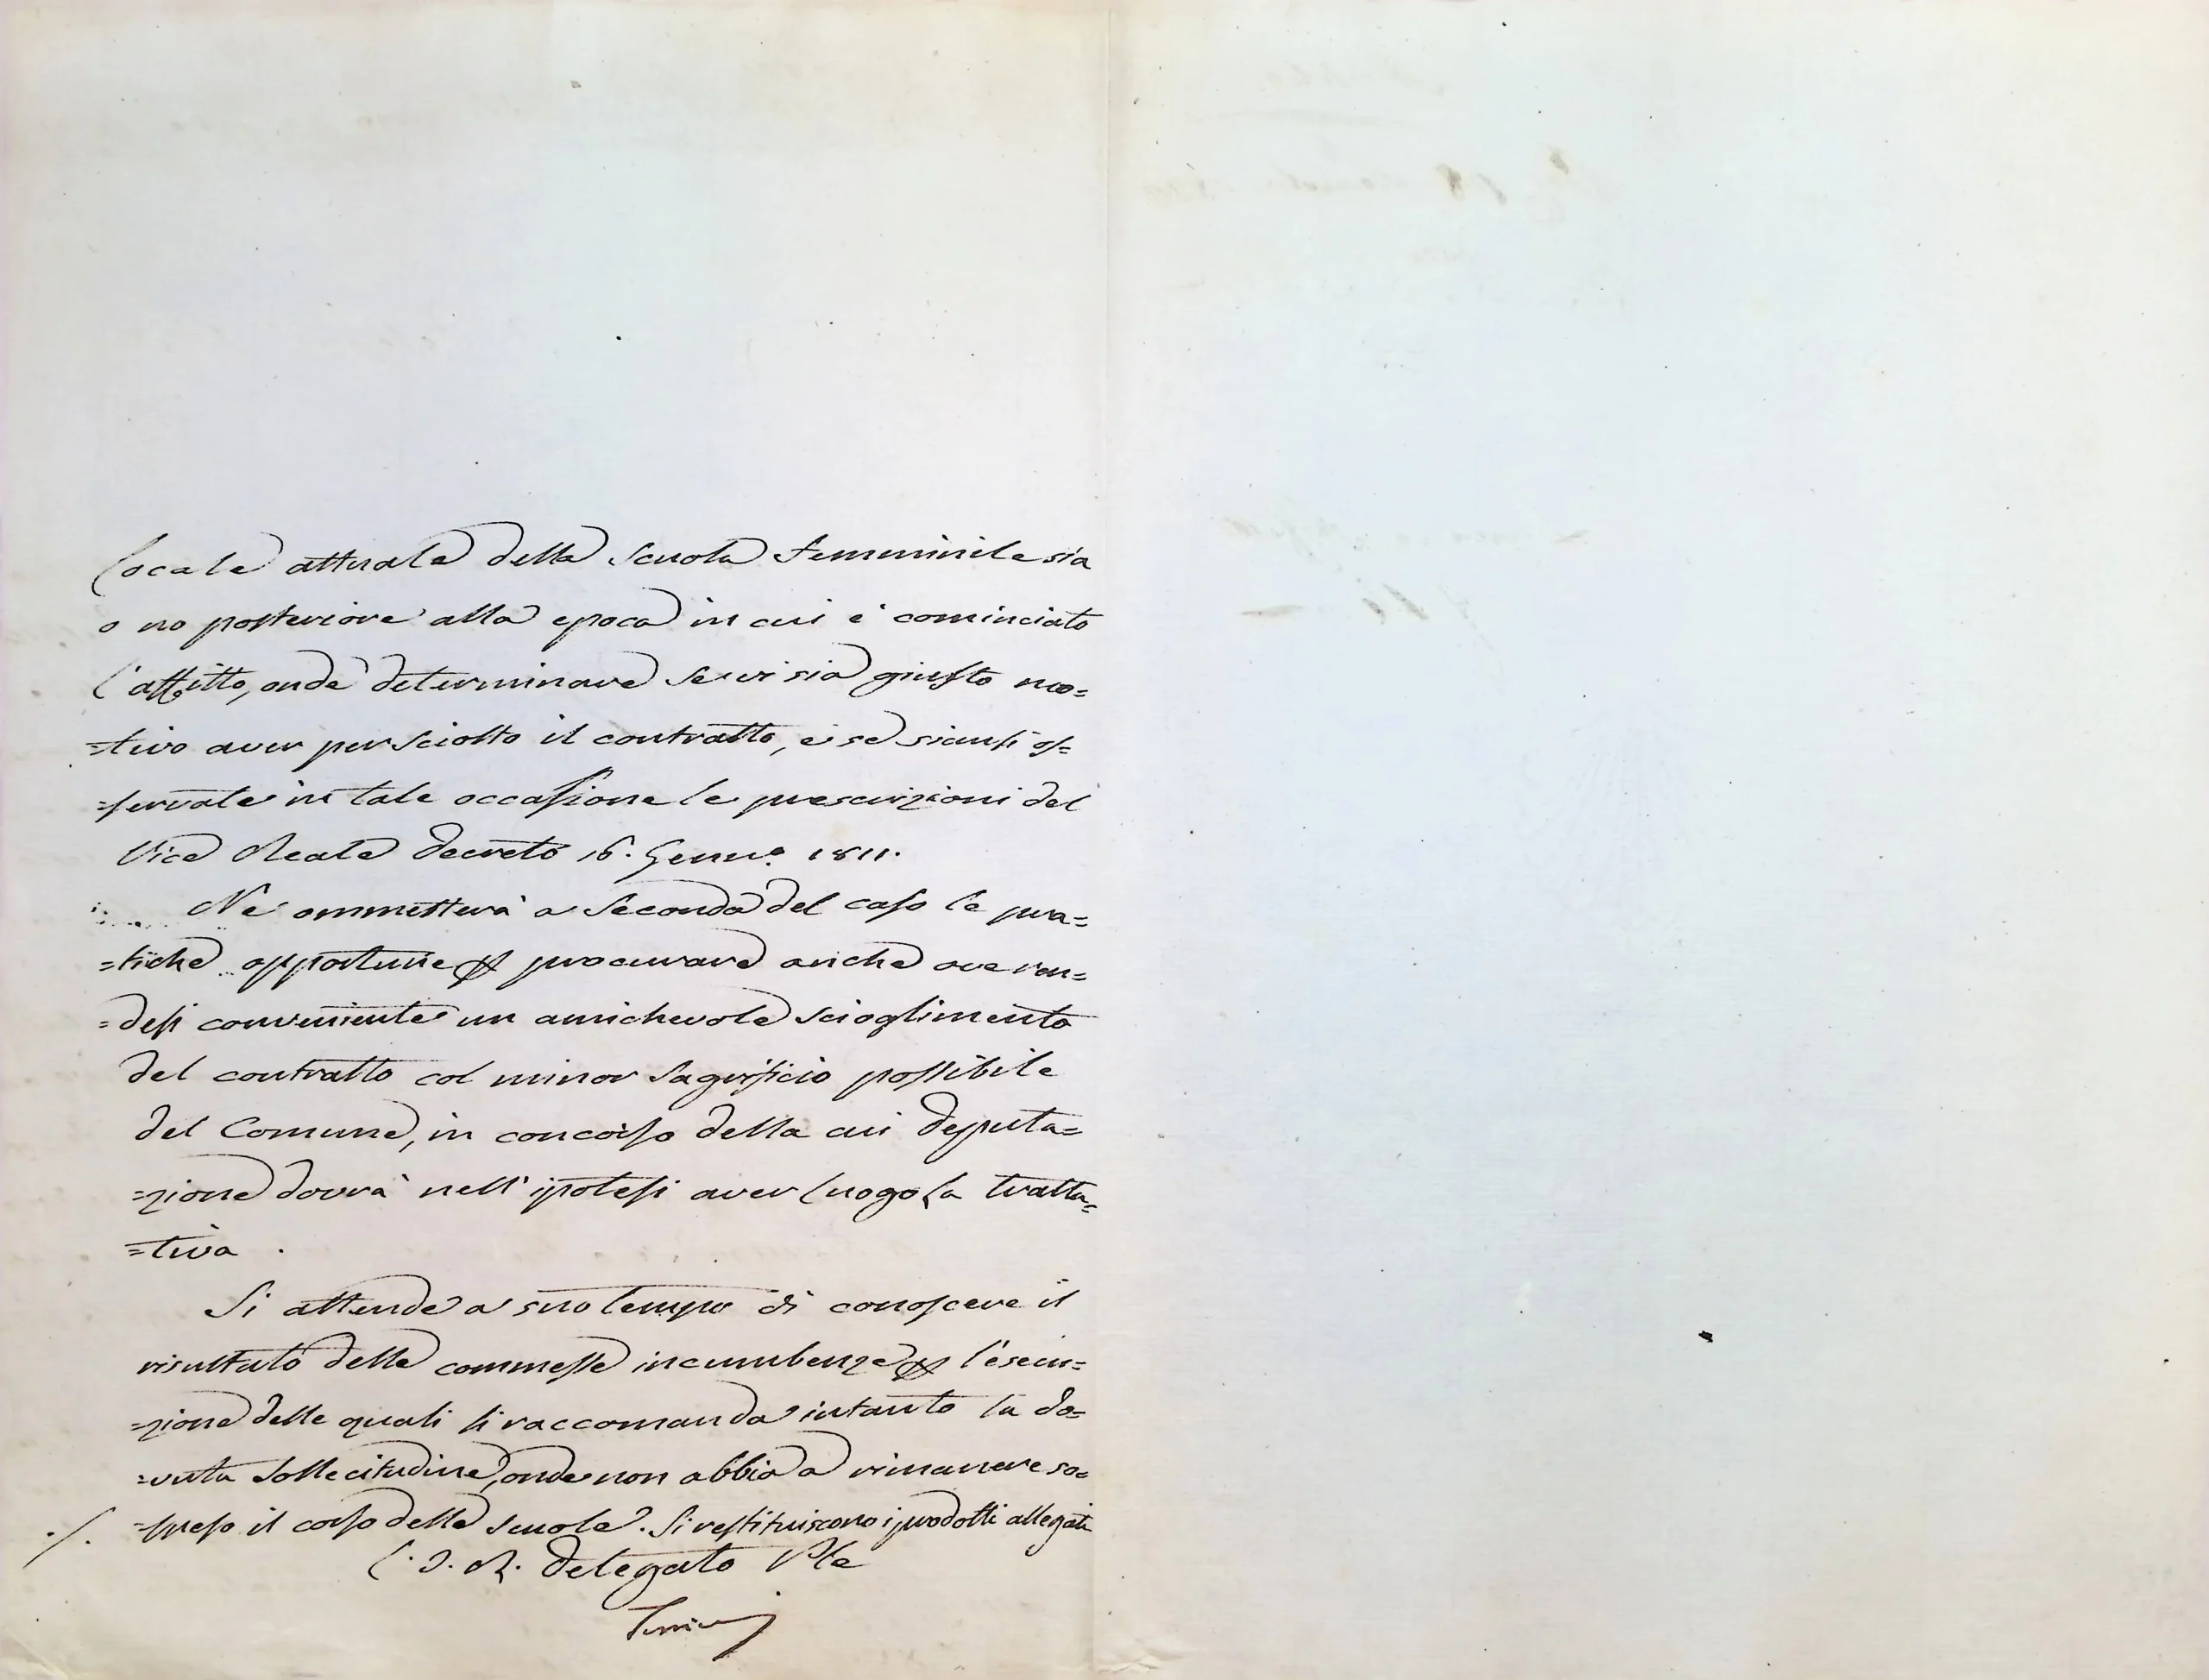 locale attuale della Scuola Femminile sia
o no posteriore alla epoca in cui è cominciato
l'affitto, onde determinare se vi sia giusto mo=
=tivo aver per sciolto il contratto, e se siansi os=
=servate in tale occasione le prescrizioni del
Vice Reale Decreto 16. Genn.o 1811.
Ne ommetterà a seconda del caso le pra=
=tiche opportune pr procurare anche ove ren=
=desi conveniente un amichevole scioglimento
del contratto col minor sagrificio possibile
del Comune, in concorso della cui Deputa=
=zione dovrà nell'ipotesi aver luogo la tratta=
=tiva.
Si attende a suo tempo di conoscere il
risultato delle commesse incumbenze pr l'esecu=
=zione delle quali si raccomanda intanto la do=
=vuta sollecitudine, onde non abbia a rimanere so=
=speso il corso delle scuole. Si restituiscono i prodotti allegati
./.
L'I. R. Delegato Ple